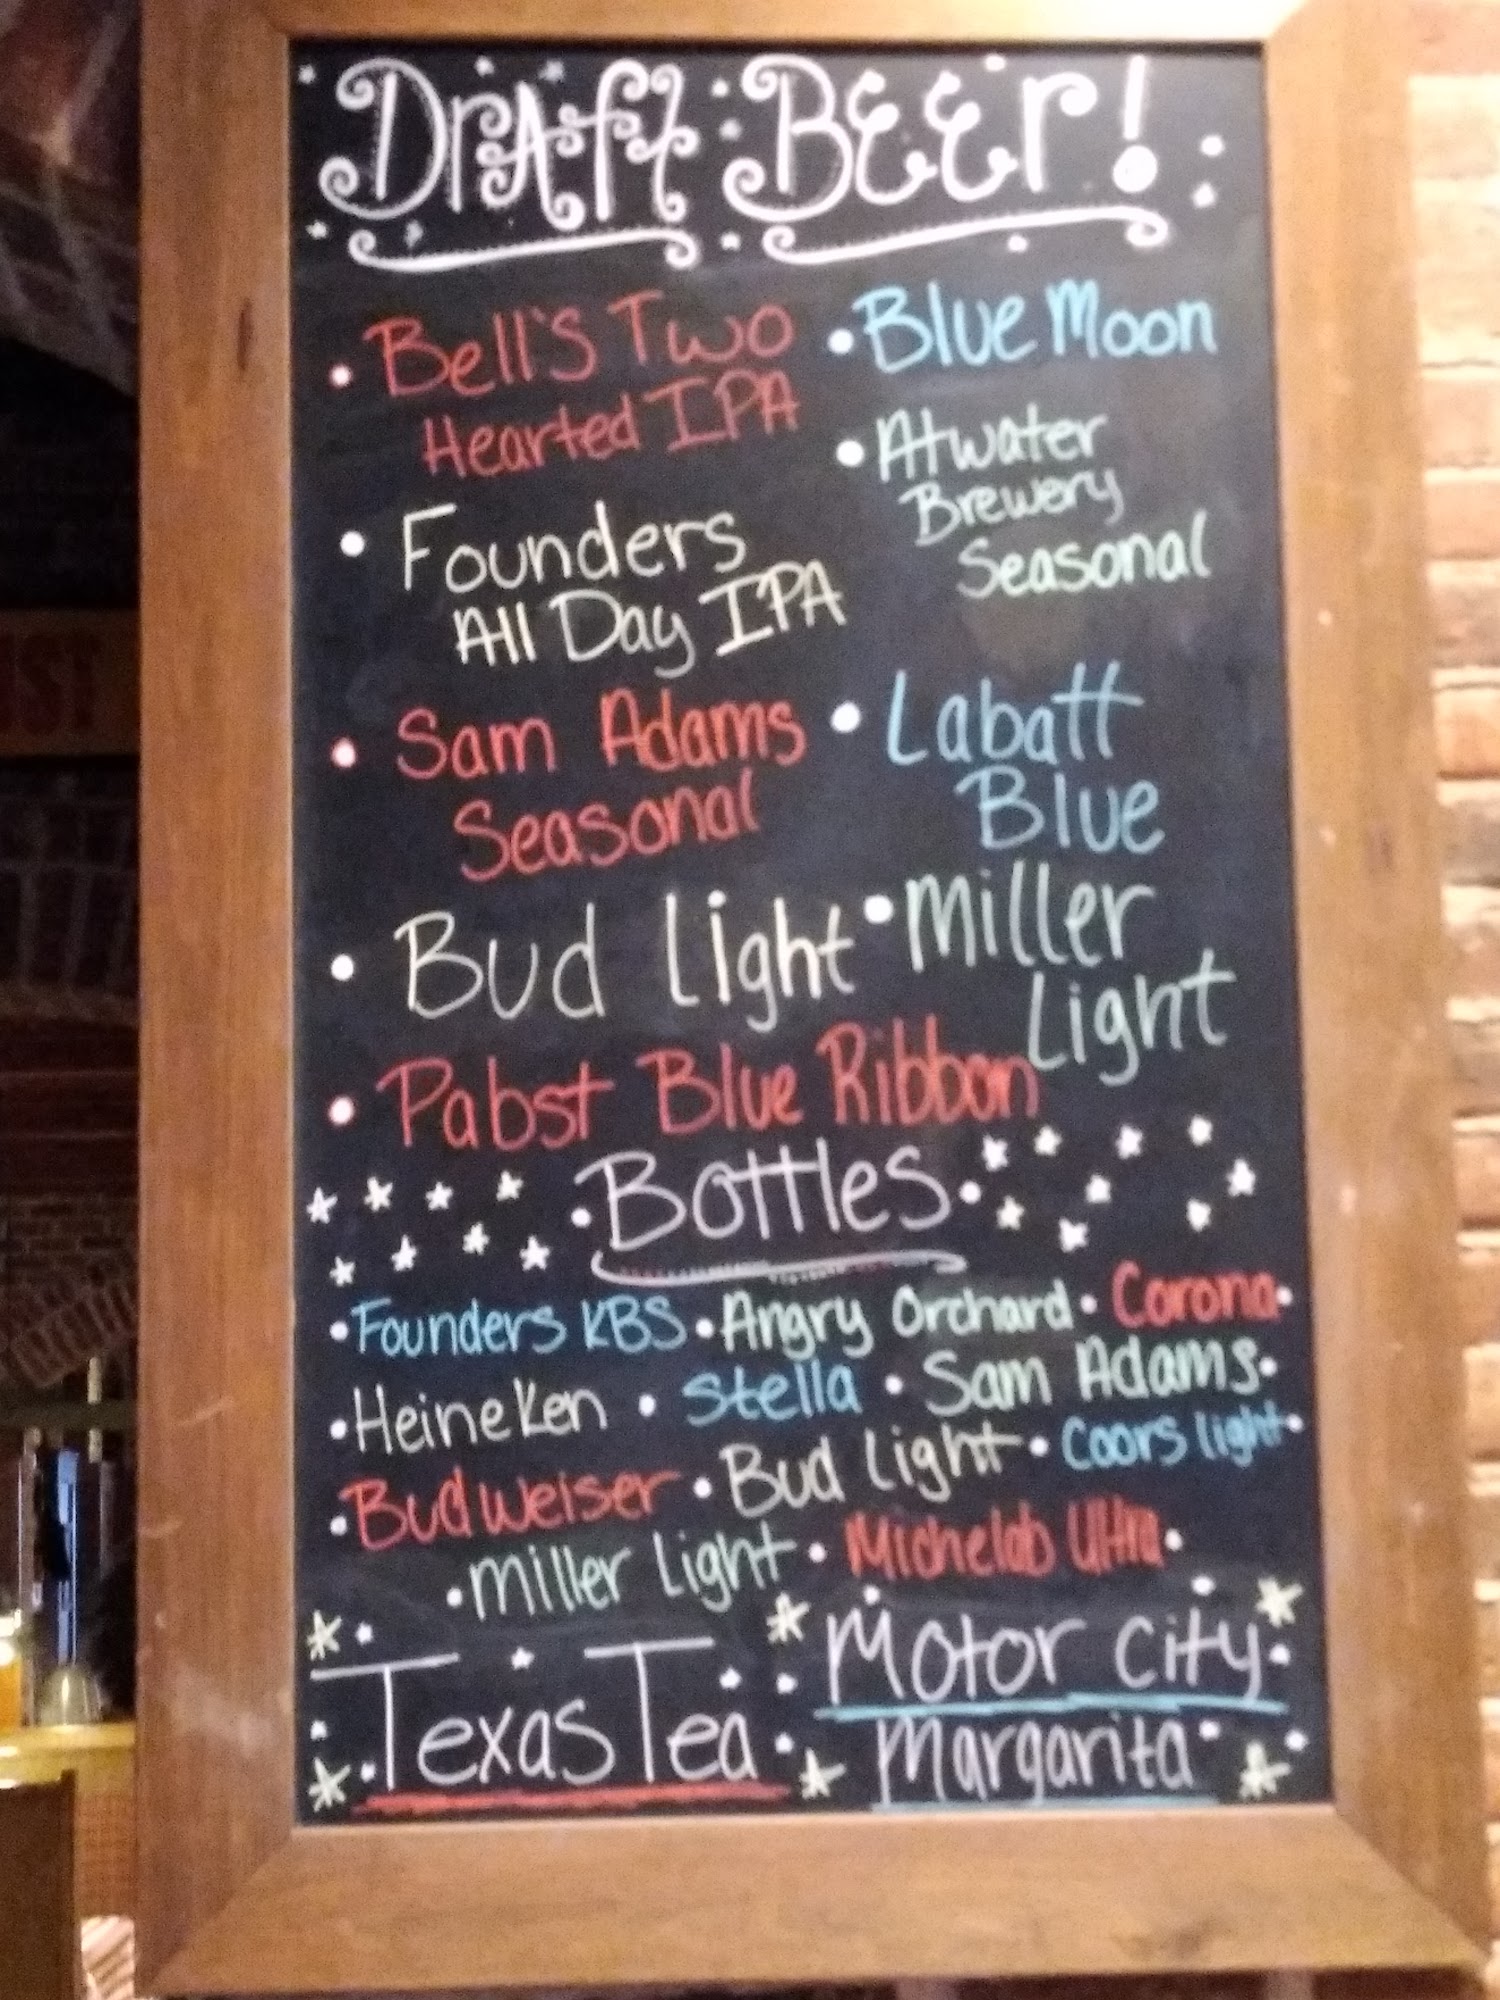 Draft Beer!
• Bell's Two
Hearted IPA
• Founders
All Day IPA
• Sam Adams
Seasonal
• Bud Light
• Pabst Blue Ribbon
• Blue Moon
• Atwater
Brewery
Seasonal
• Labatt
Blue
• Miller
Light
• Bottles •
• Founders KBS • Angry Orchard • Corona •
• Heineken • Stella • Sam Adams •
• Budweiser • Bud Light • Coors light •
• Miller Light • Michelob Ultra •
Texas Tea
Motor City
Margarita